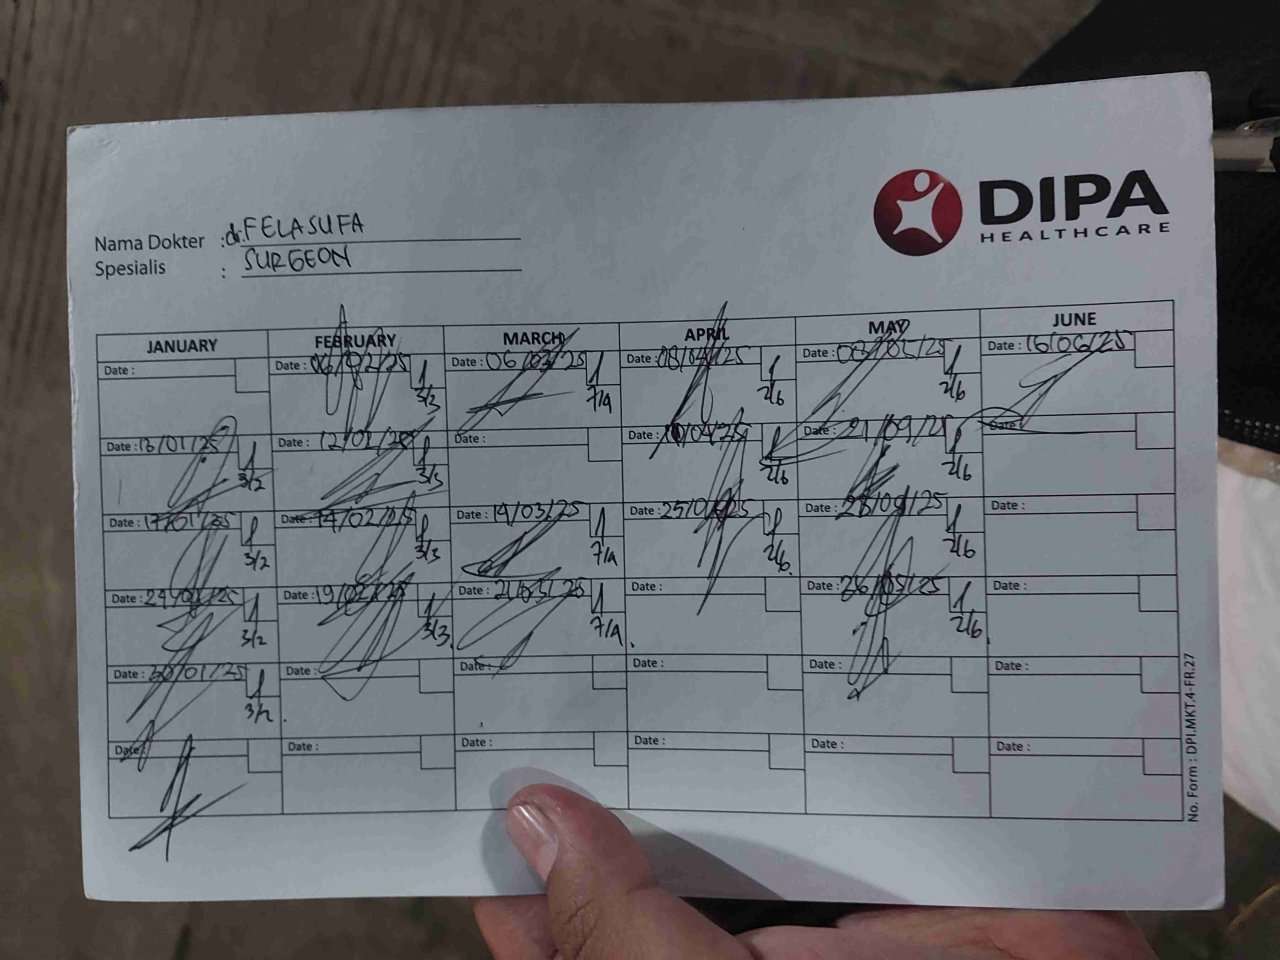 DIPA
HEALTHCARE
Nama Dokter : dr. FELASUFA
Spesialis : SURGEON
JANUARY FEBRUARY MARCH APRIL MAY JUNE
Date : Date : 06/02/25 Date : 06/03/25 Date : 08/04/25 Date : Date : 16/06/25
3/3 7/4 2/6 2/6
Date : 13/01/25 Date : 12/02/25 Date : Date : Date : Date :
3/2 3/3 2/6 2/6
Date : 17/01/25 Date : 14/02/25 Date : 14/03/25 Date : 25/04/25 Date : Date :
3/2 3/3 7/4 2/6 2/6
Date : 24/01/25 Date : 19/02/25 Date : 21/03/25 Date : Date : 26/05/25 Date :
3/2 3/3 7/4 2/6
Date : 30/01/25 Date : Date : Date : Date : Date :
3/2
Date : Date : Date : Date : Date : Date :
No. Form : DPI.MKT.4-FR.27